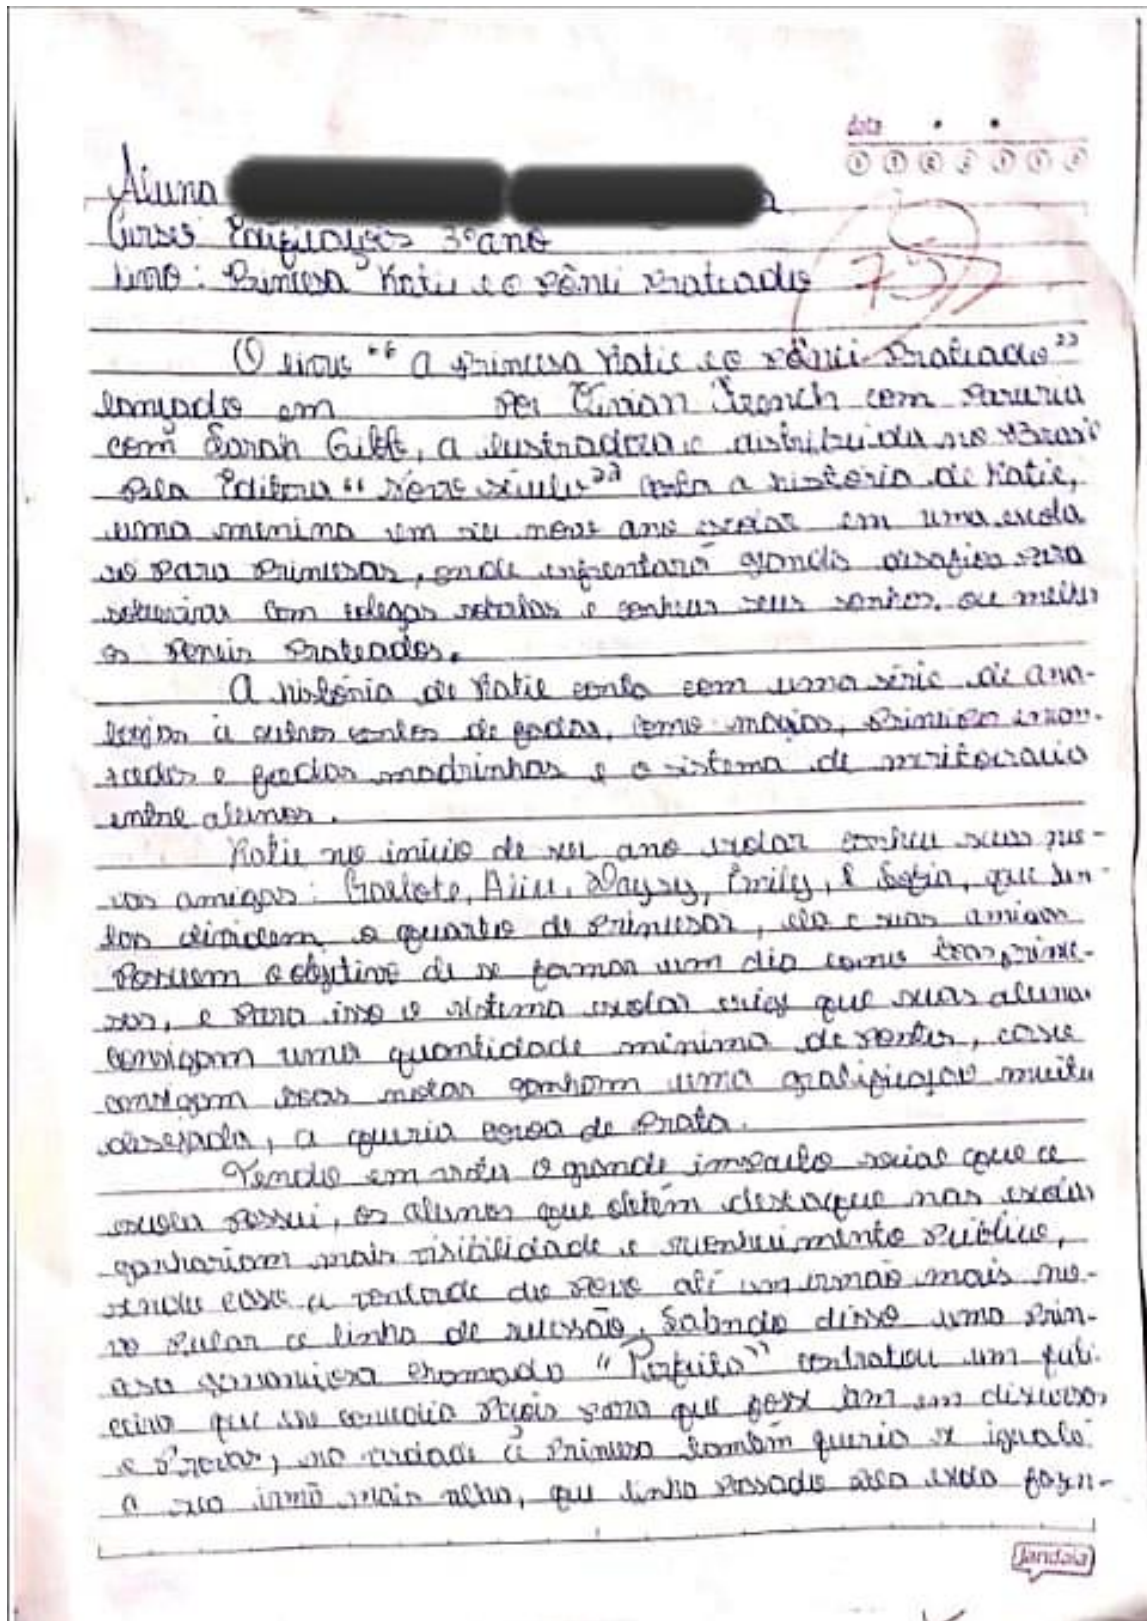 data
Aluna
Curso: Edificações 3º ano
Livro: Princesa Katie e o Pônei Prateado
7,5
O livro "A Princesa Katie e o Pônei Prateado"
lançado em por Vivian French com parceria
com Sarah Gibb, a ilustradora e distribuida no Brasil
pela Editora "Novo século" conta a história de Katie,
uma menina em seu novo ano escolar em uma escola
só para princesas, onde enfrentará grandes desafios para
com colegas e conhecer seus sonhos, ou melhor
os poneis prateados.
A história de Katie conta com uma série de ana-
logias à outros contos de fadas, como magias, príncipes encan-
tados e fadas madrinhas e o sistema de meritocracia
entre alunos.
Katie no início de seu ano escolar conhece suas no-
vas amigas: Charlote, Alice, Daysy, Emily, e Sofia, que jun-
tas dividem o quarto de princesas, ela e suas amigas
possuem o objetivo de se formar um dia como boas prince-
sas, e para isso o sistema escolar exige que suas alunas
consigam uma quantidade minima de pontos, caso
consigam boas notas ganham uma gratificação muito
desejada, a queria coroa de prata.
Tendo em vista o grande impacto social que a
escola possui, os alunos que obtém destaque nas escolas
ganhariam mais visibilidade e reconhecimento público,
sendo caso a vontade do povo até um irmão mais no-
vo pular a linha de sucessão. Sabndo disso uma prin-
cesa chamada "Perfeita" contratou um feiti-
ceiro que lhe para que fosse bem em discursos
e provas, na verdade a princesa também queria se igualá
a sua irmã mais velha, que tinha passado pela escola fazen-
Jandaia